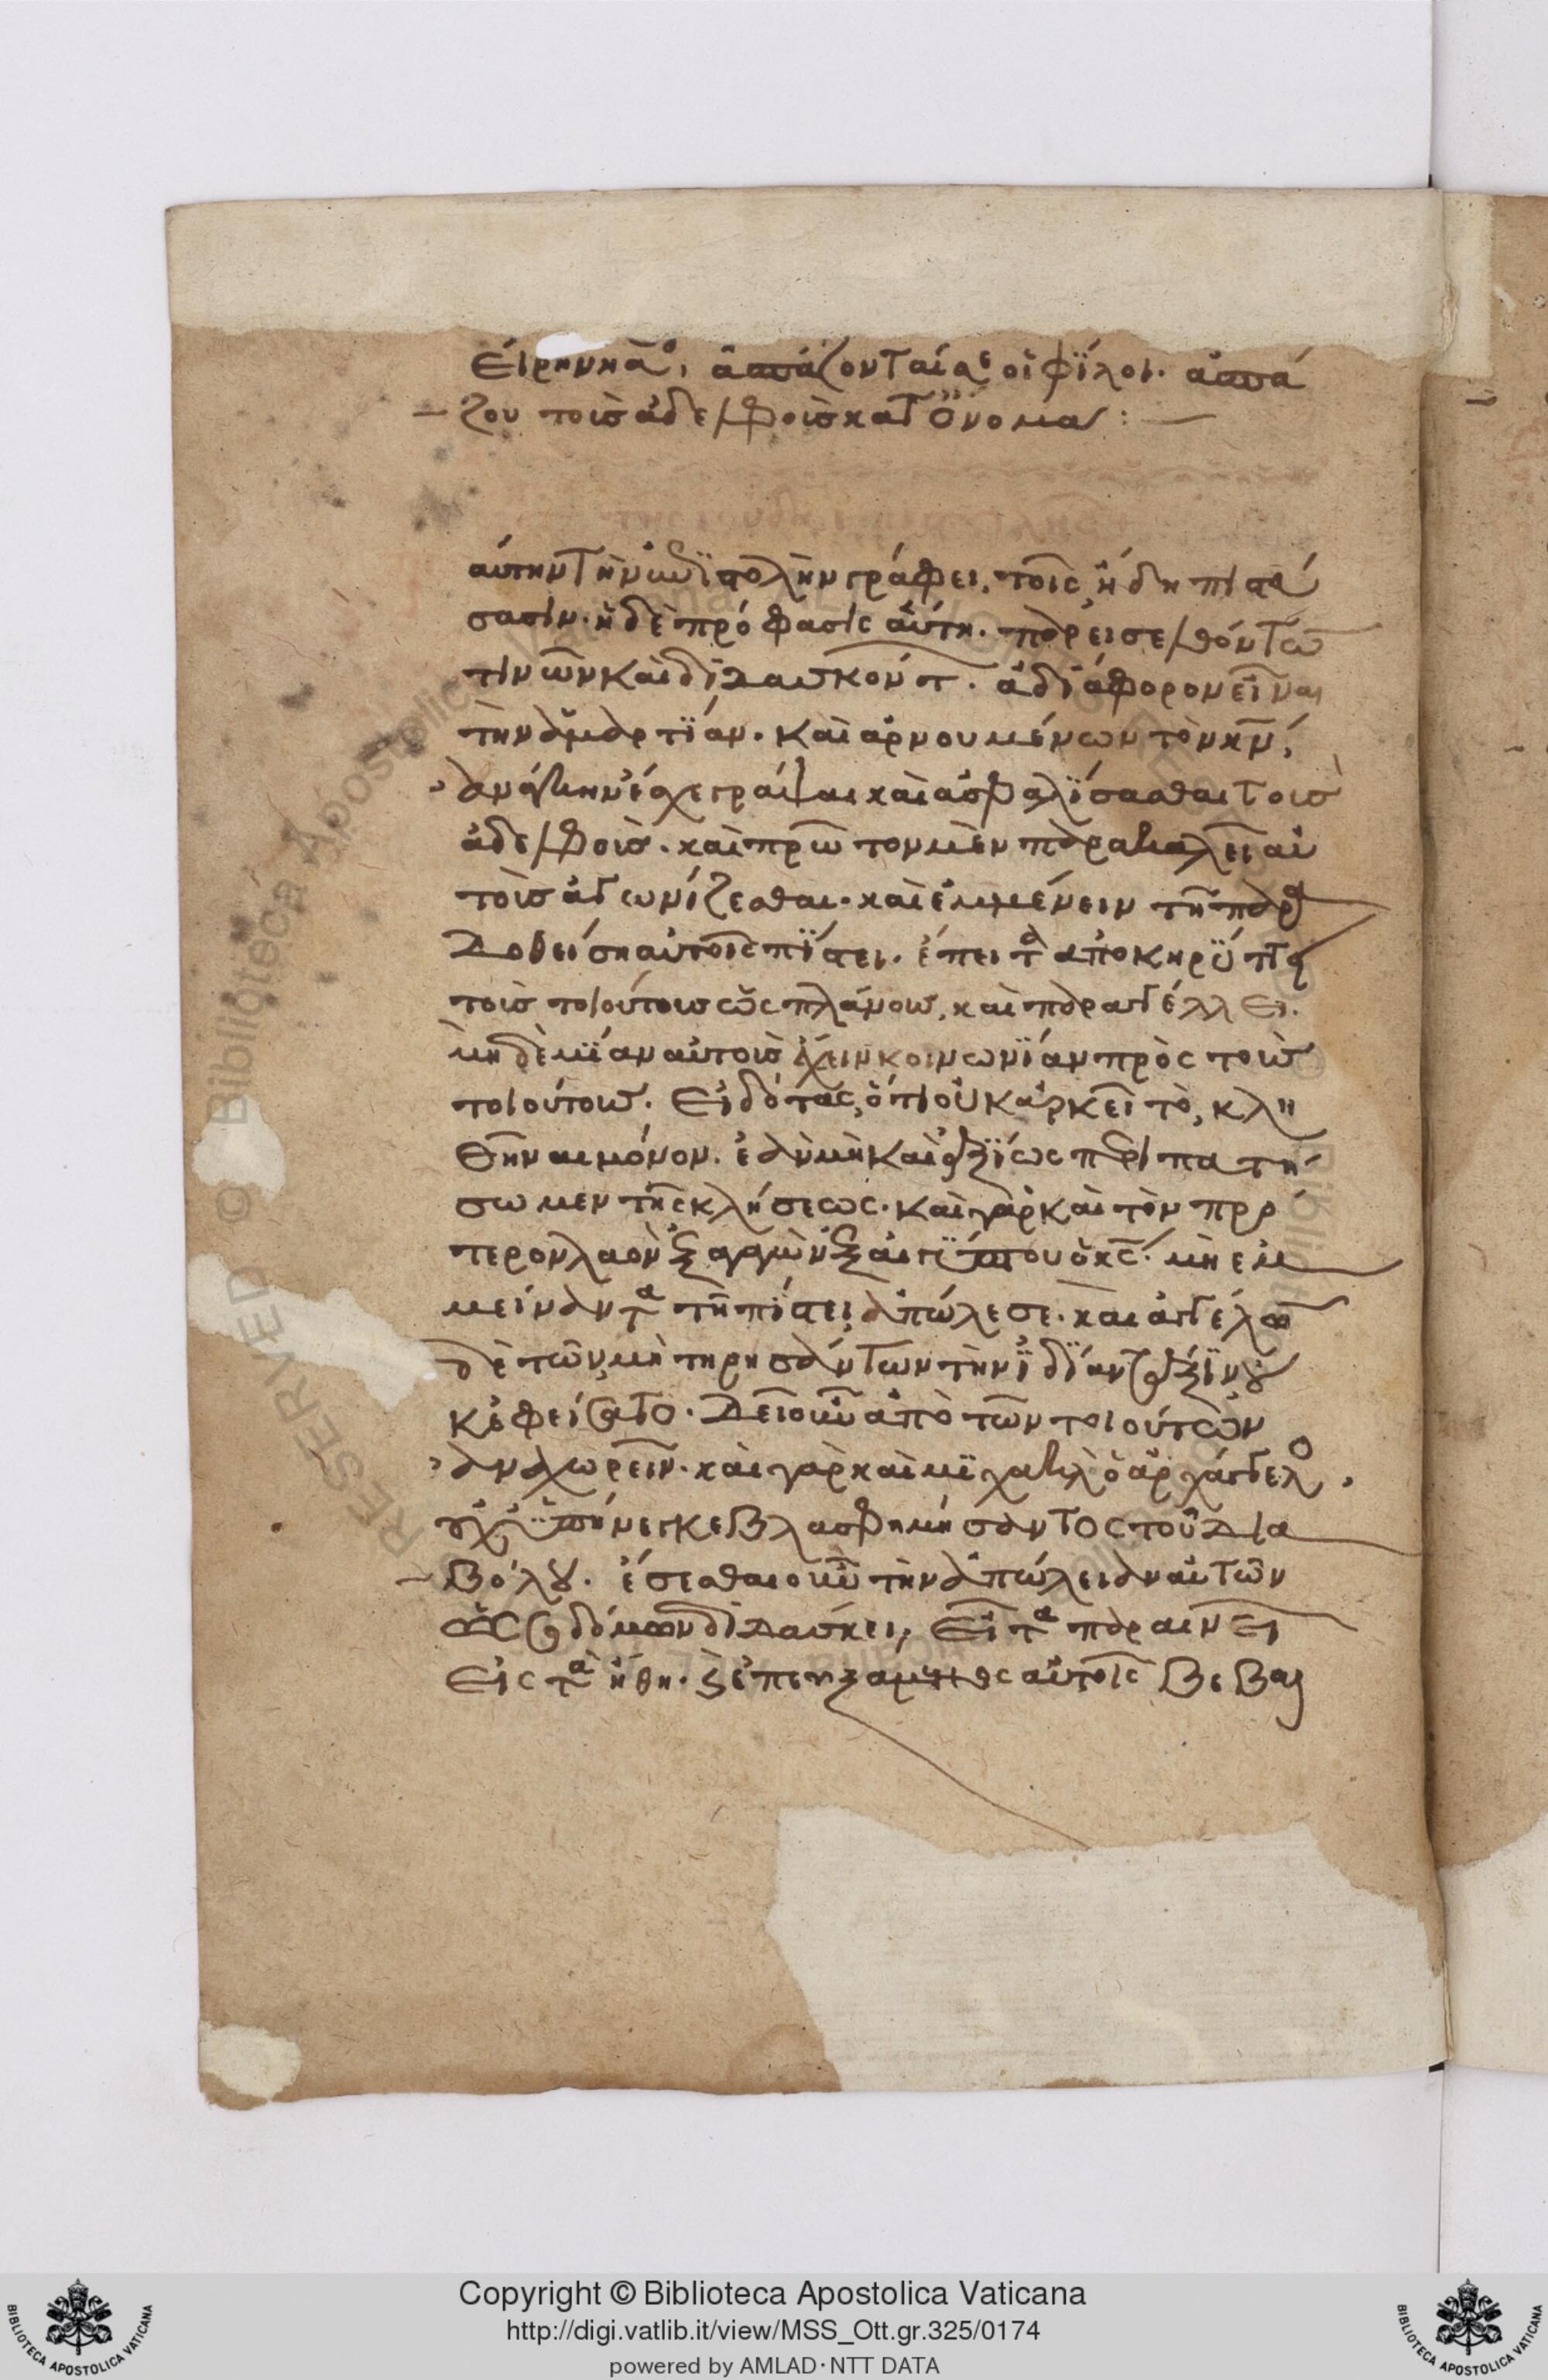 Εἰρηνησ· ἀσπάζονταί σε οἱ φίλοι. ἀσπά
ζου τοὺσ ἀδελφοὺσ κατ ὄνομα :
αὐτὴν τὴν ἐπιστολὴν γράφει, τοῖς ἤδη πιστεύ
σασιν. ἡ δὲ πρόφασις αὕτη. παρεισελθόντων
τινῶν καὶ διδασκόντ. ἀδιάφορον εἶναι
τὴν ἁμαρτίαν. καὶ ἀρνουμένων τὸν κν̅,
ἀνάγκην ἔσχε γράψαι καὶ ἀσφαλίσασθαι τοὺσ
ἀδελφοὺσ. καὶ πρῶτον μὲν παρακαλεῖ αὐ
τοὺσ ἀγωνίζεσθαι. καὶ ἐμμένειν τῆ παρα
δοθείση αὐτοῖς πίστει. ἔπειτα ἀποκηρύττει
τοὺσ τοιούτουσ ὡς πλάνουσ, καὶ παραγγέλλει.
μηδεμίαν αὐτοὺσ ἔχειν κοινωνίαν πρὸς τοὺσ
τοιούτουσ. Εἰδότας, ὅτι οὐκ ἀρκεῖ τὸ, κλη
θῆναι μόνον. ἐὰν μὴ καὶ ἀξίως περιπατή
σωμεν τῆς κλήσεως. καὶ γὰρ καὶ τὸν πρό
τερον λαὸν ἐξαγαγὼν ἐξ αἰγύπτου ὁ κς̅. μὴ ἐμ
μείναντα τῆ πίστει, ἀπώλεσε. καὶ ἀγγέλων
δὲ τῶν μὴ τηρησάντων τὴν ἰδίαν τάξιν οὐ
κ ἐφείσατο. Δεῖ οὖν ἀπὸ τῶν τοιούτων
ἀναχωρεῖν. καὶ γὰρ καὶ μιχαὴλ ὁ ἀρχάγγελος,
οὐχ ὑπήνεγκε βλασφημήσαντος τοῦ δια
βόλου. ἔσεσθαι οὖν τὴν ἀπώλειαν αὐτῶν
ὡς σοδόμων διδάσκει, Εἶτα παραινεῖ
Εἰς τὰ ἤθη. καὶ ἐπευξάμενος αὐτοῖς βεβαι
Copyright © Biblioteca Apostolica Vaticana
http://digi.vatlib.it/view/MSS_Ott.gr.325/0174
powered by AMLAD·NTT DATA